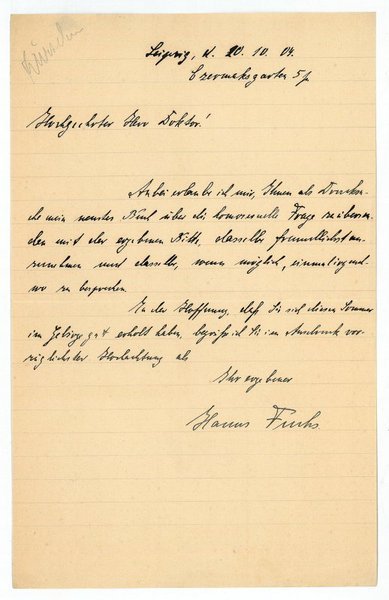 Leipzig, d. 20.10.04.
Czermaksgarten 5 I
Hochgeehrter Herr Doktor!
Anbei erlaube ich mir, Ihnen als Drucksa-
che mein neustes Buch über die homosexuelle Frage zu übersen-
den mit der ergebenen Bitte, dasselbe freundlichst an-
zunehmen und dasselbe, wenn möglich, einmal irgend-
wo zu besprechen.
In der Hoffnung, daß Sie sich diesen Sommer
im Gebirge gut erholt haben, begrüße ich Sie im Ausdruck vor-
züglichster Hochachtung als
Ihr ergebener
Hanns Fuchs